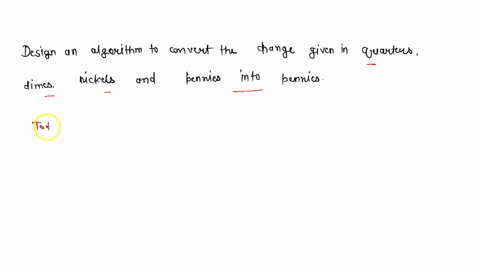 Design an algorithm to convert the change given in quarters,
dimes, Nickels and pennies into pennies.